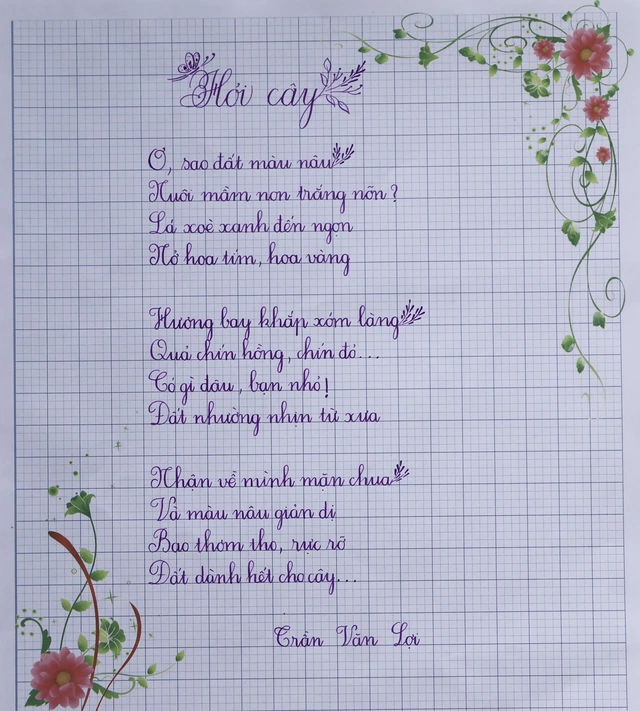 Hỏi cây
Ơ, sao đất màu nâu
Nuôi mầm non trắng nõn?
Lá xoè xanh đến ngọn
Nở hoa tím, hoa vàng
Hương bay khắp xóm làng
Quả chín hồng, chín đỏ...
Có gì đâu, bạn nhỏ!
Đất nhường nhịn từ xưa
Nhận về mình mặn chua
Và màu nâu giản dị
Bao thơm tho, rực rỡ
Đất dành hết cho cây...
Trần Văn Lợi